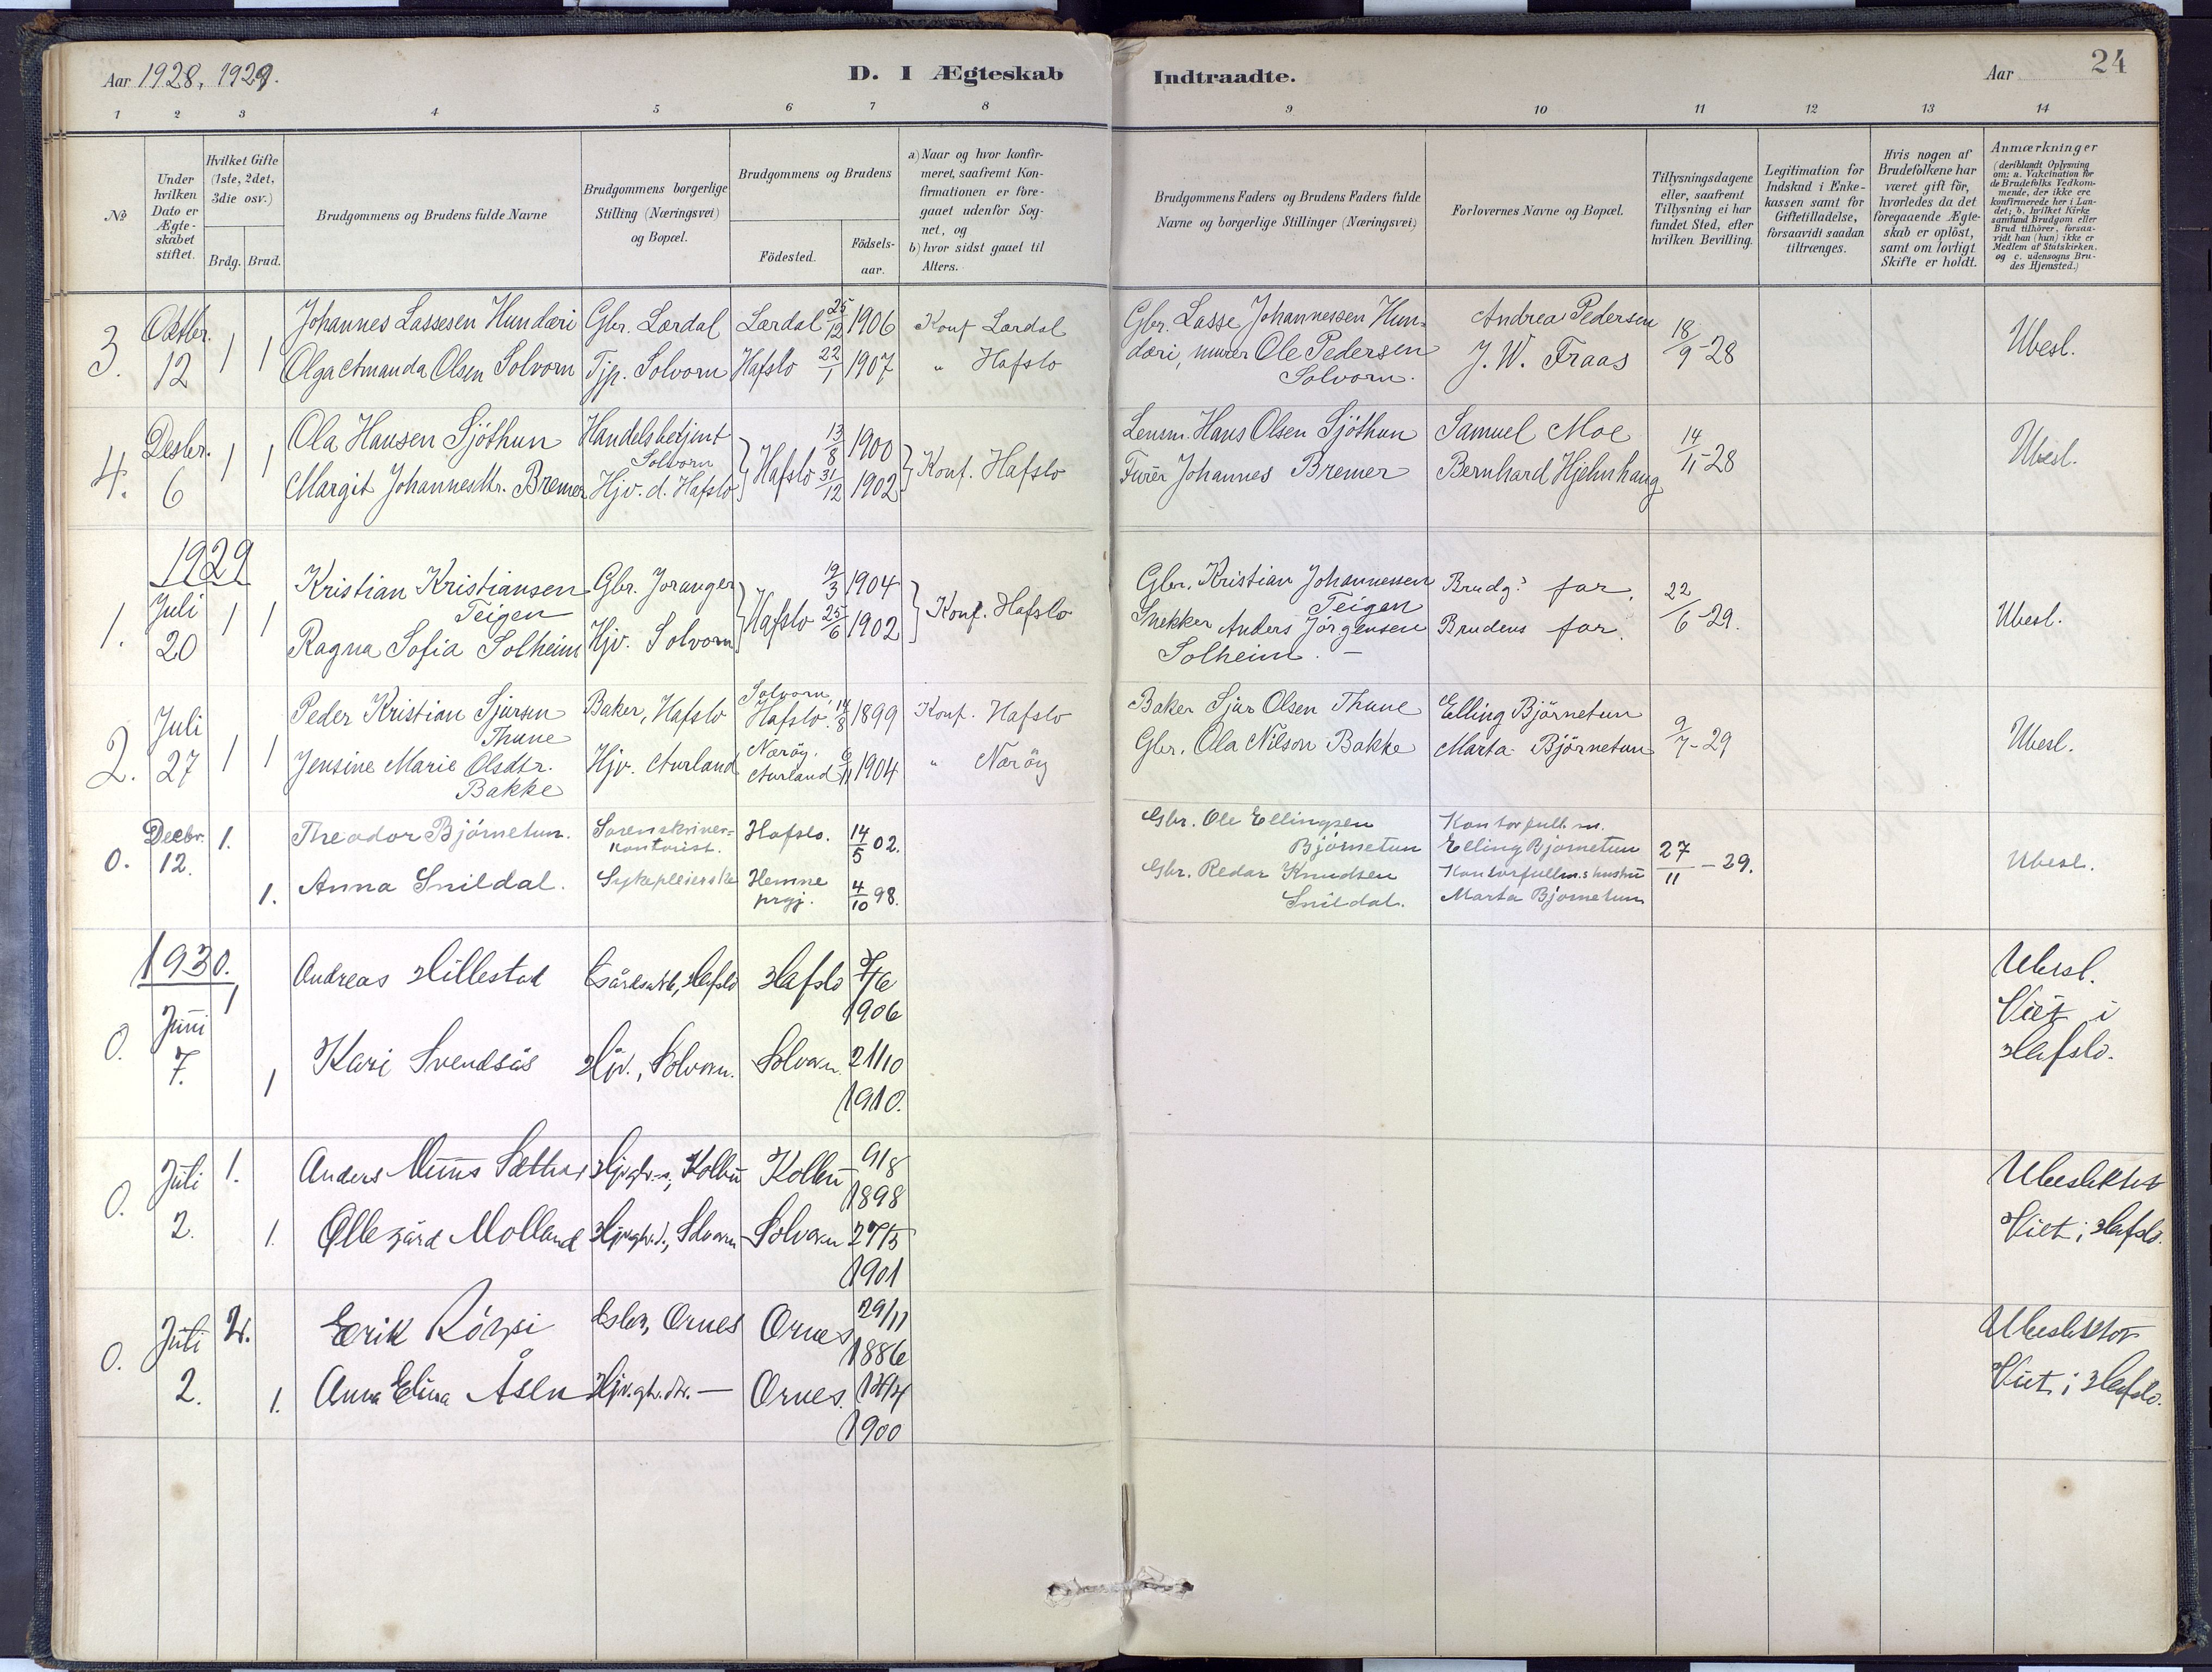 Aar 1928, 1929.
D. I Ægteskab Indtraadte.
Aar 24
1 2 3 4 5 6 7 8 9 10 11 12 13 14
No
Under hvilken Dato er Ægte-skabet stiftet.
Hvilket Gifte (1ste, 2det, 3die osv.)
Brdg. Brud.
Brudgommens og Brudens fulde Navne
Brudgommens borgerlige Stilling (Næringsvei) og Bopæl.
Brudgommens og Brudens
Födested.
Födsels-aar.
a) Naar og hvor konfir-meret, saafremt Kon-firmationen er fore-gaaet udenfor Sog-net, og
b) hvor sidst gaaet til Alters.
Brudgommens Faders og Brudens Faders fulde Navne og borgerlige Stillinger (Næringsvei)
Forlovernes Navne og Bopæl.
Tillysningsdagene eller, saafremt Tillysning ei har fundet Sted, efter hvilken Bevilling.
Legitimation for Indskud i Enke-kassen samt for Giftetilladelse, forsaavidt saadan tiltrænges.
Hvis nogen af Brudefolkene har været gift för, hvorledes da det foregaaende Ægte-skab er oplöst, samt om lovligt Skifte er holdt.
Anmærkninger (deriblandt Oplysning om: a. Vakcination for de Brudefolks Vedkom-mende, der ikke ere konfirmerede her i Lan-det; b. hvilket Kirke samfund Brudgom eller Brud tilhörer, forsaa-vidt han (hun) ikke er Medlem af Statskirken. og c. udensogns Bru-des Hjemsted.)
3. Oktbr. 12 1 1
Johannes Lassesen Hundæri Gbr. Lærdal Lærdal 25/12 1906 Konf Lærdal
Olga Amanda Olsen Solvorn Tjp. Solvorn Hafslo 22/1 1907 " Hafslo
Gbr. Lasse Johannessen Hun-
dæri, murer Ole Pedersen
Solvorn.
Andrea Pedersen
J. W. Fraas
18/9-28
Ubesl.
4. Desbr. 6 1 1
Ola Hansen Sjöthun Handelsbetjent
Solvorn
Margit Johannesdtr. Bremer Hjv. d. Hafslo
Hafslo 13/8 1900
31/12 1902
Konf. Hafslo
Lensm. Hans Olsen Sjöthun Samuel Moe
Furer Johannes Bremer Bernhard Hjelmhaug
14/11-28
Ubesl.
1929
1. Juli 20 1 1
Kristian Kristiansen
Teigen
Gbr. Joranger
Ragna Sofia Solheim Hjv. Solvorn
Hafslo 19/3 1904
25/6 1902
Konf. Hafslo
Gbr. Kristian Johannessen
Teigen
Snekker Anders Jörgensen
Solheim. -
Brudg? far.
Brudens far.
22/6-29.
Ubesl.
2. Juli 27 1 1
Peder Kristian Sjursen
Thune
Baker, Hafslo
Solvorn
Hafslo. 14/8 1899 Konf. Hafslo
Jensine Marie Olsdtr.
Bakke
Hjv. Aurland
Næröy.
Aurland 6/11 1904 " Næröy
Baker Sjur Olsen Thune Elling Björnetun
Gbr. Ola Nilson Bakke Marta Björnetun
9/7-29
Ubesl.
0. Decbr. 12. 1.
Theodor Björnetun. Sorenskriver-
kontorist.
Hafslo. 14/5 02.
1. Anna Snildal. Sykepleierske Hemne
prgj.
4/10 98.
Gbr. Ole Ellingsen
Björnetun
Gbr. Redar Knudsen
Snildal.
Kontorfullm.
Elling Bjørnetun
Kontorfullm.s hustru
Marta Bjørnetun
27/11-29.
Ubesl.
1930.
0. Juni 7. 1
Andreas Hillestad Gårdsarb., Hafslo Hafslo
1906
1 Kari Svendsås Hjv., Solvorn. Solvorn 21/10
1910.
Ubesl.
Viet i
Hafslo.
0. Juli 2. 1.
Anders Kolbu Kolbu 9/8
1898
1. Ollegård Molland Solvorn Solvorn 27/5
1901
Ubeslektet
Viet i Hafslo.
0. Juli 2. 2.
Erik Ornes Ornes 29/11
1886
1. Anna Elina Åsen Hjv. gbr.dtr. — Ornes.
1900
Ubeslektet
Viet i Hafslo.